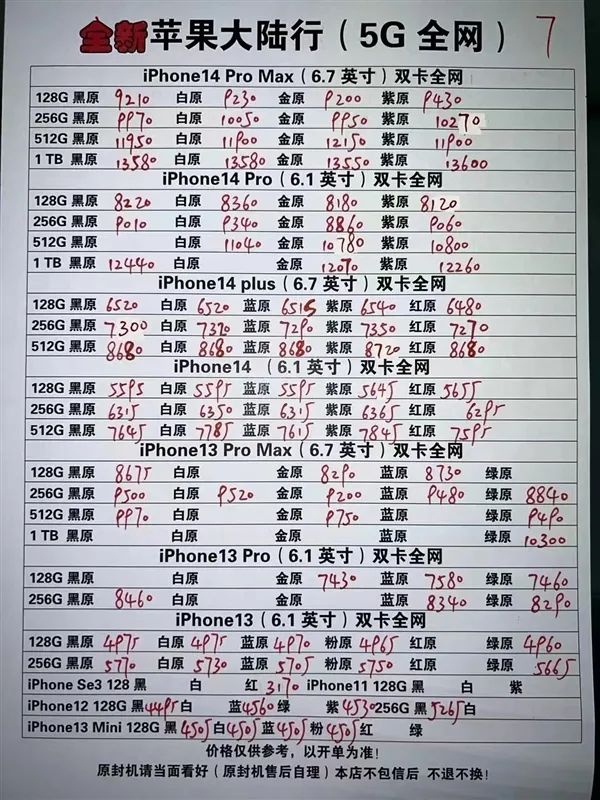 全新苹果大陆行（5G 全网） 7
iPhone14 Pro Max（6.7 英寸）双卡全网
128G 黑原 9210 白原 9230 金原 9200 紫原 9430
256G 黑原 9970 白原 10050 金原 9950 紫原 10270
512G 黑原 11950 白原 11900 金原 12150 紫原 11900
1 TB 黑原 13580 白原 13580 金原 13550 紫原 13600
iPhone14 Pro（6.1 英寸）双卡全网
128G 黑原 8220 白原 8360 金原 8180 紫原 8120
256G 黑原 9010 白原 9340 金原 8860 紫原 9060
512G 黑原 白原 11040 金原 10780 紫原 10800
1 TB 黑原 12440 白原 金原 12070 紫原 12260
iPhone14 plus（6.7 英寸）双卡全网
128G 黑原 6520 白原 6520 蓝原 6515 紫原 6540 红原 6480
256G 黑原 7300 白原 7320 蓝原 7290 紫原 7350 红原 7270
512G 黑原 8680 白原 8680 蓝原 8680 紫原 8720 红原 8680
iPhone14 （6.1 英寸）双卡全网
128G 黑原 5595 白原 5595 蓝原 5595 紫原 5645 红原 5655
256G 黑原 6315 白原 6350 蓝原 6315 紫原 6365 红原 6295
512G 黑原 7645 白原 7785 蓝原 7615 紫原 7845 红原 7595
iPhone13 Pro Max（6.7 英寸）双卡全网
128G 黑原 8675 白原 金原 8290 蓝原 8730 绿原
256G 黑原 9500 白原 9520 金原 9200 蓝原 9480 绿原 8840
512G 黑原 9970 白原 金原 9750 蓝原 绿原 9490
1 TB 黑原 白原 金原 蓝原 绿原 10300
iPhone13 Pro（6.1 英寸）双卡全网
128G 黑原 白原 金原 7430 蓝原 7580 绿原 7460
256G 黑原 8460 白原 金原 蓝原 8340 绿原 8290
iPhone13（6.1 英寸）双卡全网
128G 黑原 4975 白原 4975 蓝原 4970 粉原 4965 红原 绿原 4960
256G 黑原 5770 白原 5730 蓝原 5705 粉原 5750 红原 绿原 5665
iPhone Se3 128 黑 白 红 3170 iPhone11 128G 黑 白 紫
iPhone12 128G 黑 4495 白 蓝 4560 绿 紫 4530 256G 黑 5265 白
iPhone13 Mini 128G 黑 4505 白 4505 蓝 4505 粉 4505 红 绿
价格仅供参考，以开单为准！
原封机请当面看好（原封机售后自理）本店不包信后 不退不换！